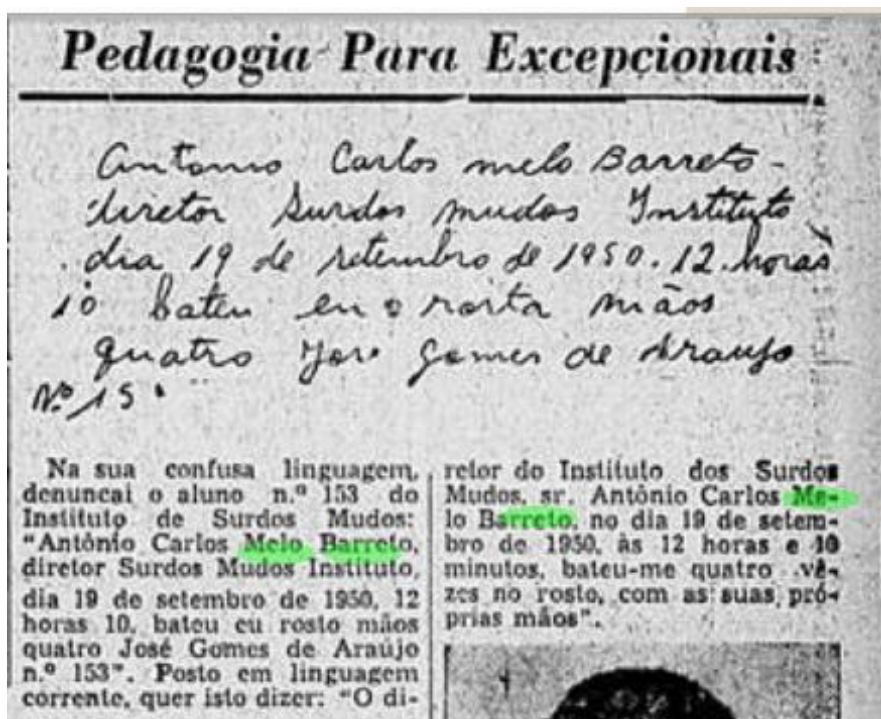 Pedagogia Para Excepcionais
Antonio Carlos melo Barreto -
diretor Surdos mudos Instituto
dia 19 de setembro de 1950. 12. horas
10 bateu eu o rosto mãos
quatro José Gomes de Araujo
Nº 15
Na sua confusa linguagem,
denuncai o aluno n.º 153 do
Instituto de Surdos Mudos:
"Antônio Carlos Melo Barreto,
diretor Surdos Mudos Instituto,
dia 19 de setembro de 1950, 12
horas 10, bateu eu rosto mãos
quatro José Gomes de Araújo
n.º 153". Posto em linguagem
corrente, quer isto dizer: "O di-
retor do Instituto dos Surdos
Mudos, sr. Antônio Carlos Me-
lo Barreto, no dia 19 de setem-
bro de 1950, às 12 horas e 10
minutos, bateu-me quatro vê-
zes no rosto, com as suas pró-
prias mãos".